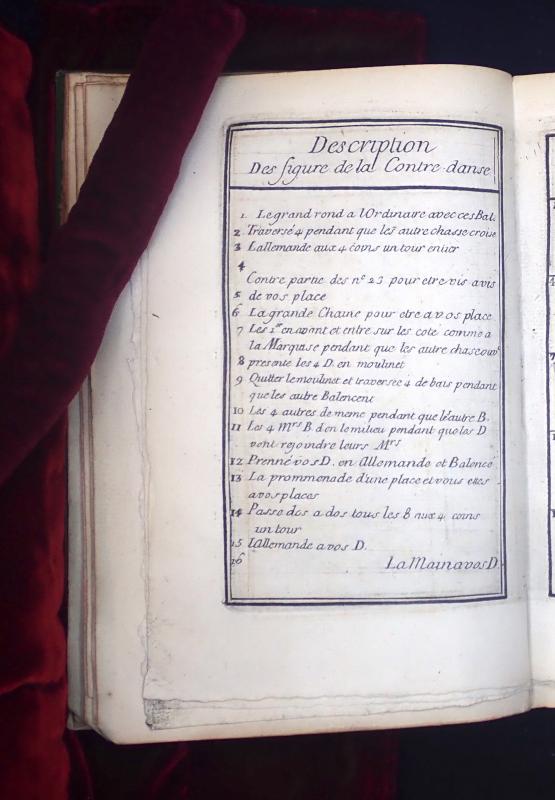 Description
Des figure de la Contre-danse
1. Le grand rond a l'Ordinaire avec ces Bal.
2 Traversé 4 pendant que les autre chasse croisé
3 Lallemande aux 4 coins un tour entier
4
Contre partie des n.º 2 3 pour etre vis avis
5 de vos place
6 La grande Chaine pour etre a vos place
7 Les 1.ers en avant et entre sur les coté comme a
la Marquise pendant que les autre chasse ouv.
8 presente les 4 D. en moulinet
9 Quitter le moulinet et traversée 4 de bais pendant
que les autre Balencent
10 Les 4 autres de meme pendant que le autre B.
11 Les 4 Mrs B. d en le milieu pendant que les D
vont rejoindre leurs Mrs
12 Prenné vos D. en Allemande et Balencé
13 La prommenade d'une place et vous etes
a vos places
14 Passe dos a dos tous les 8 aux 4 coins
un tour
15 Lallemande a vos D.
16 La Main a vos D